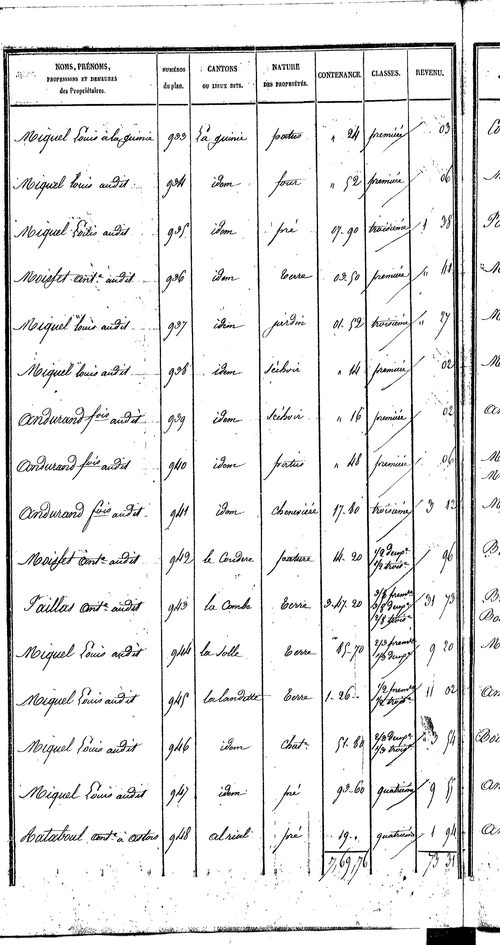 NOMS, PRÉNOMS, PROFESSIONS ET DEMEURES des Propriétaires. NUMÉROS du plan. CANTONS OU LIEUX DITS. NATURE DES PROPRIÉTÉS. CONTENANCE. CLASSES. REVENU.
Miquel Louis à la guinie 933 La guinie patus " 24 première 03
Miquel Louis audit 934 idem four " 52 première 06
Miquel Louis audit 935 idem pré 07.90 troisième 38
Moisset ant.e audit 936 idem terre 03.50 première " 41
Miquel Louis audit 937 idem jardin 01.52 troisième " 27
Miquel Louis audit 938 idem séchoir " 14 première 02
Andurand fois audit 939 idem séchoir " 16 première 02
Andurand fois audit 940 idem patus " 48 première 06
Andurand fois audit 941 idem chenevière 17.80 troisième 3 12
Moisset ant.e audit 942 le Couderc pature 14.20 1/2 deux.e 1/2 trois.e 96
Taillas ant.e audit 943 la Combe terre 3.47.20 3/8 prem.re 3/8 deux.e 2/8 trois.e 31 73
Miquel Louis audit 944 la solle terre 85.70 2/3 prem.re 1/3 deux.e 9 20
Miquel Louis audit 945 la landette terre 1.26 1/2 prem.re 1/2 trois.e 11 02
Miquel Louis audit 946 idem chat.e 51.80 2/3 deux.e 1/3 trois.e 3 54
Miquel Louis audit 947 idem pré 93.60 quatrième 9
ant.e à 948 al rial pré 19. quatrième 1 94
7,69,76 73 31